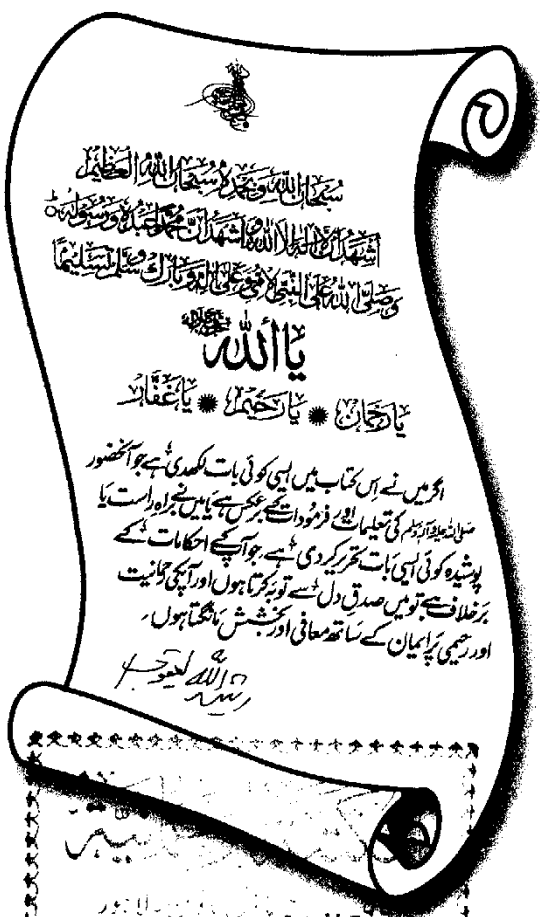 سُبْحَانَ اللّٰهِ وَبِحَمْدِهٖ سُبْحَانَ اللّٰهِ الْعَظِیْمِ
اَشْهَدُ اَنْ لَّا اِلٰهَ اِلَّا اللّٰهُ وَ اَشْهَدُ اَنَّ مُحَمَّدًا عَبْدُهٗ وَرَسُوْلُهٗ
وَصَلَّی اللّٰهُ عَلَی النَّبِیِّ الْاُمِّیِّ وَعَلٰی اٰلِهٖ وَبَارَكَ وَسَلَّمَ تَسْلِیْمًا
یَا أَللّٰه
یَا رَحْمَانُ * یَا رَحِیْمُ * یَا غَفَّارُ
اگر میں نے اِس کتاب میں ایسی کوئی بات لکھدی ہے جو آنحضور
صلی اللہ علیہ وآلہ وسلم کی تعلیمات اور فرمودات کے برعکس ہے یا میں نے براہ راست یا
پوشیدہ کوئی ایسی بات تحریر کر دی ہے، جو آپ کے احکامات کے
برخلاف ہے تو میں صدقِ دل سے توبہ کرتا ہوں اور آپکی رحمانیت
اور رحیمی پر ایمان کے ساتھ معافی اور بخشش مانگتا ہوں۔
رشید اللہ یعقوب
لاہور